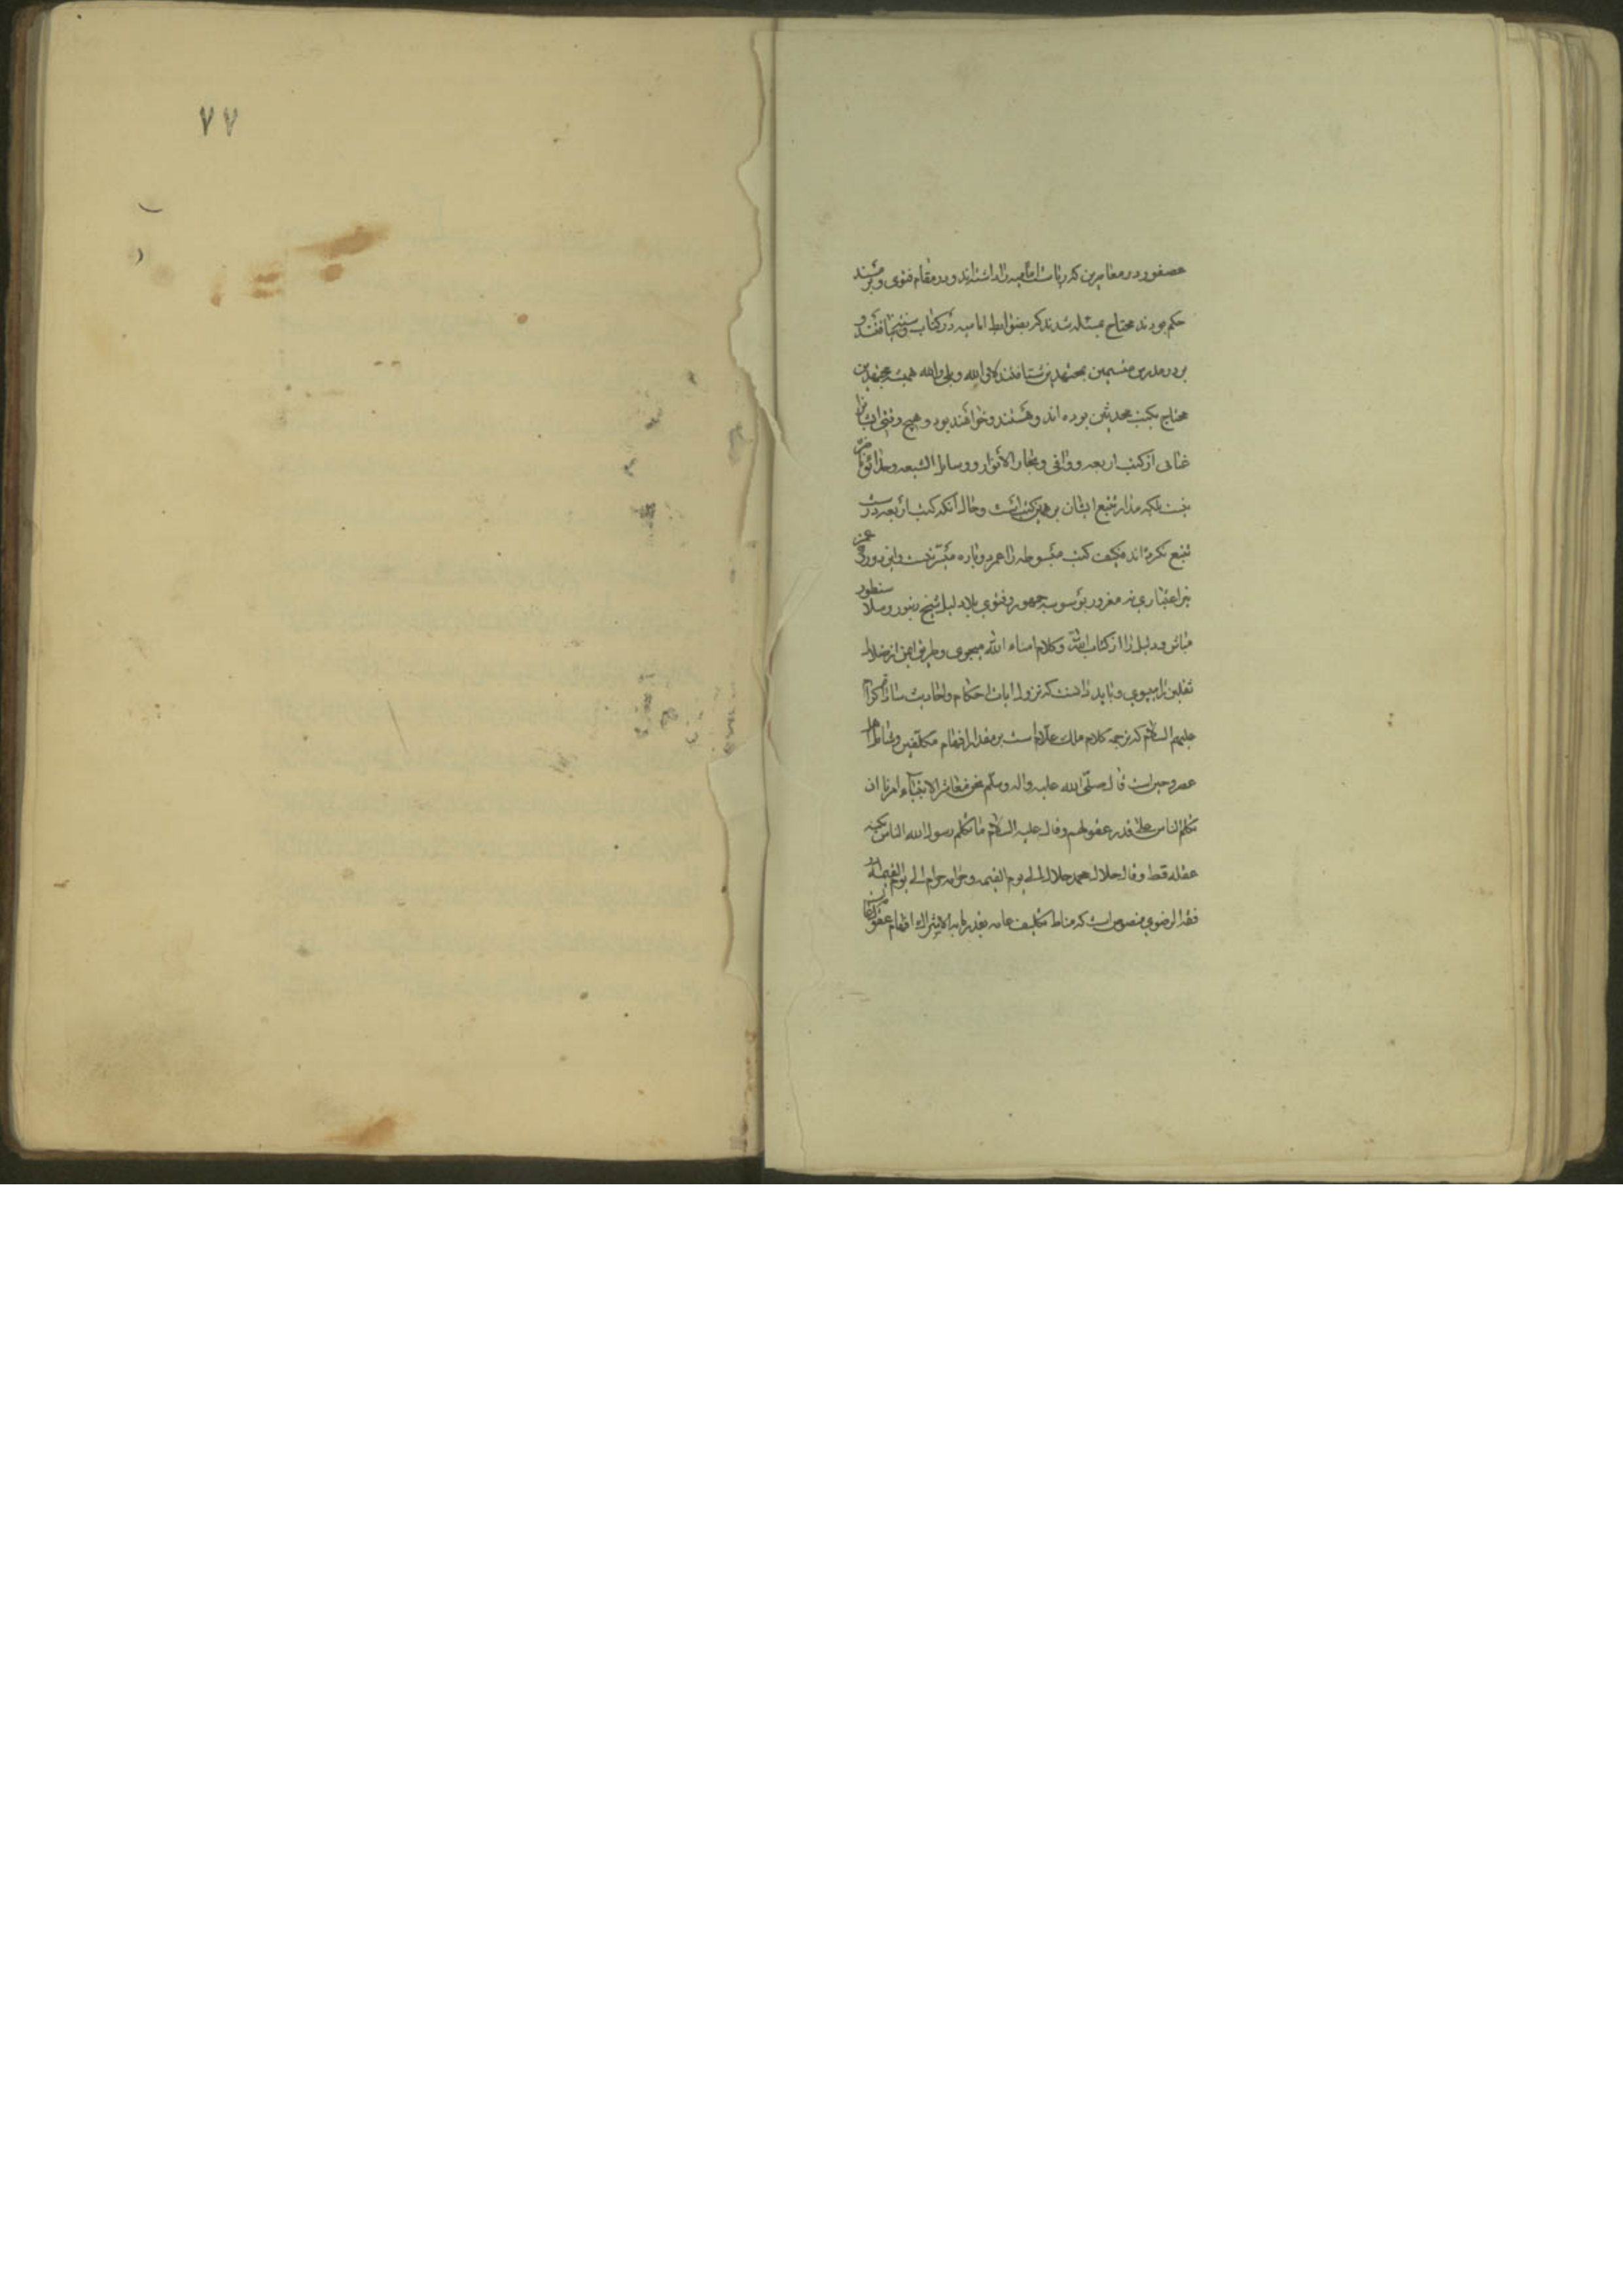 عصفور در معاصرین که ریاست امامیه را داشته‌اند و در مقام فتوی و بر مسند
حکم بودند محتاج بمسئله شدند که بضوابط امامیه در کتاب و سنت نیافتند و
بر در مدرس متسمین بمجتهدین شتافتند لا والله و بلی والله همیشه مجتهدین
محتاج بکتب محدثین بوده اند و هستند و خواهند بود و هیچ وقتی ایشانرا
غنائی از کتب اربعه و وافی و بحار الانوار و وسایل الشیعه و حدائق ناضره
نیست بلکه مدار تتبع ایشان بر همین کتب است و حال آنکه کتب اربعه درست
تتبع نکرده اند فکیف کتب مبسوطه را عمر دوباره میسر نیست و این دو روزه عمر
نیز اعتباری نه مغرور بوسوسه جمهور و فتوی بلا دلیل شیخ و سلار
مباش و دلیل را از کتاب الله و کلام امناء الله میجوی و طریق ایمن از ضلال
ثقلین را میپوی و باید دانست که نزول ایات احکام و احادیث سادات کرام
علیهم السلام که ترجمه کلام ملک علام است بر مقدار افهام مکلفین و اهل
عصر و حین است قال صلی الله علیه واله وسلم نحن معاشر الانبیاء امرنا ان
نکلم الناس علی قدر عقولهم و قال علیه السلام ما کلم رسول الله الناس بکنه
عقله قط و قال حلال محمد حلال الی یوم القیمه و حرامه حرام الی یوم القیمه
فقه الرضوی منصوص است که مناط تکلیف عامه بقدر ما به الاشتراک افهام عقول
۷۷